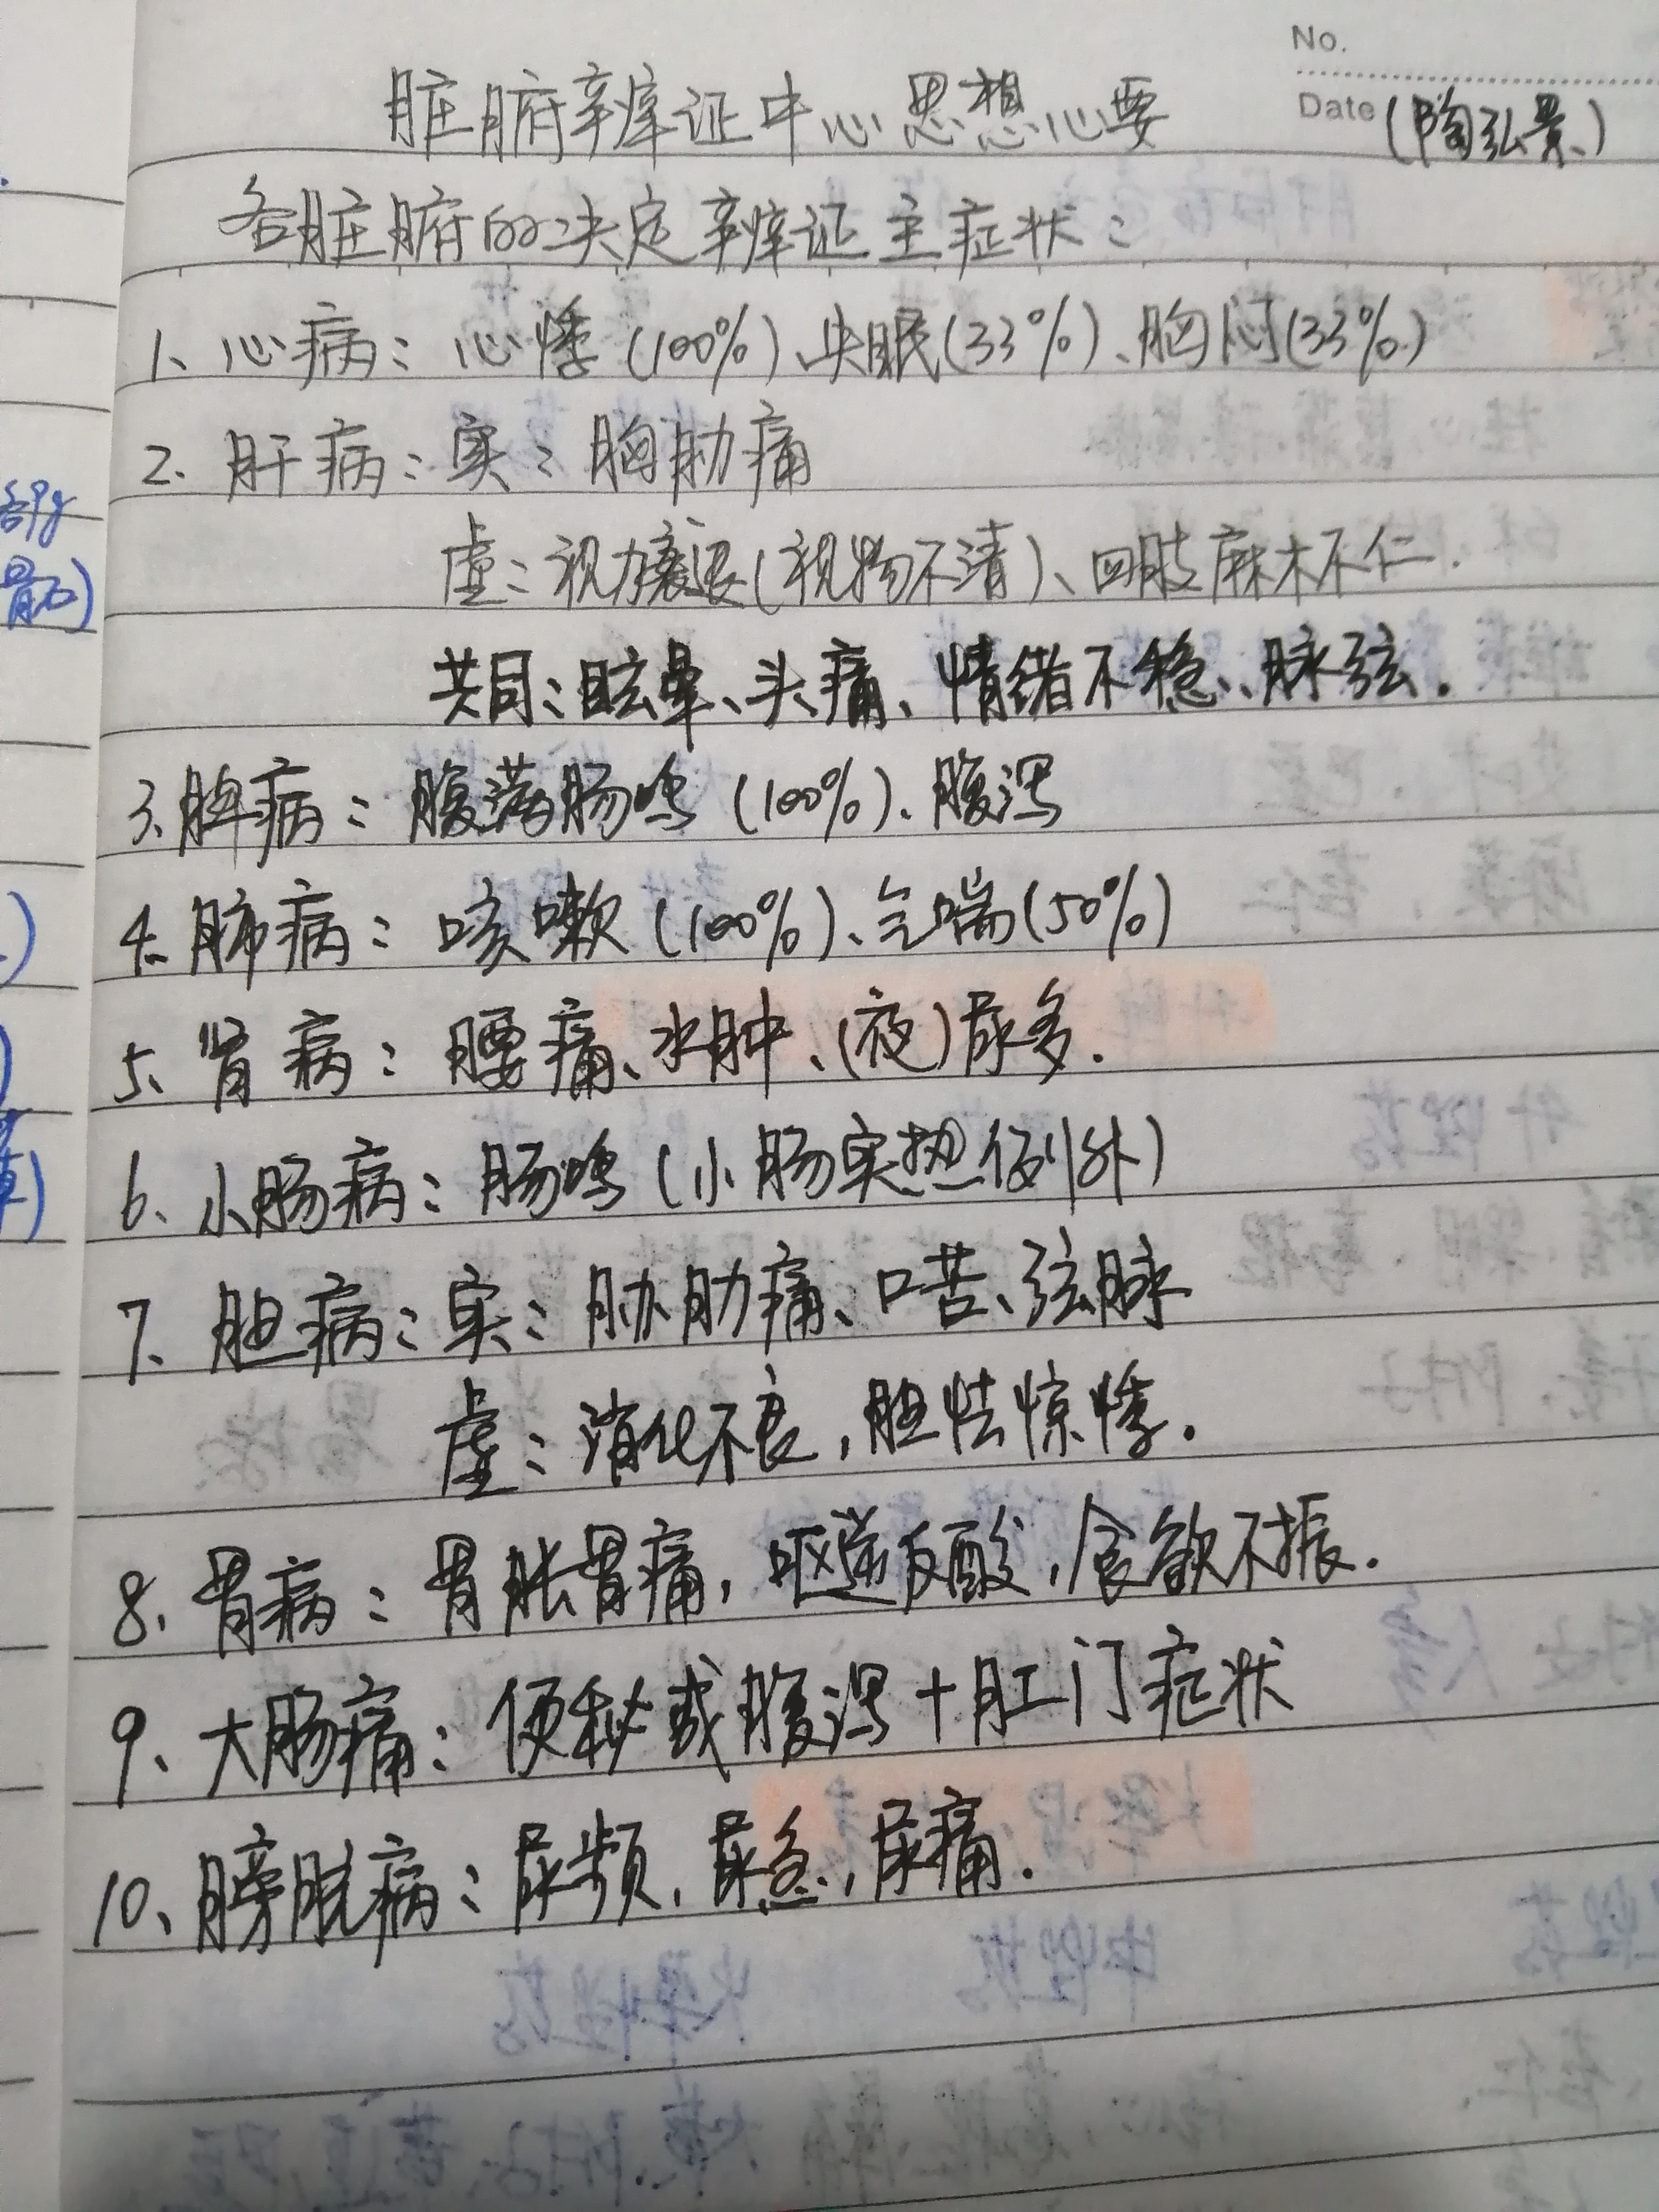 No.
脏腑辨证中心思想心要
Date (陶弘景)
各脏腑的决定辨证主症状:
1、心病: 心悸(100%)、失眠(33%)、胸闷(33%)
2、肝病: 实: 胸肋痛
虚: 视力衰退(视物不清)、四肢麻木不仁.
共同: 眩晕、头痛、情绪不稳、脉弦.
3、脾病: 腹满肠鸣(100%)、腹泻
4、肺病: 咳嗽(100%)、气喘(50%)
5、肾病: 腰痛、水肿、(夜)尿多.
6、小肠病: 肠鸣(小肠实热例外)
7、胆病: 实: 胁肋痛、口苦、弦脉
虚: 消化不良, 胆怯惊悸.
8、胃病: 胃胀胃痛, 呕逆反酸, 食欲不振.
9、大肠痛: 便秘或腹泻+肛门症状
10、膀胱病: 尿频, 尿急, 尿痛.